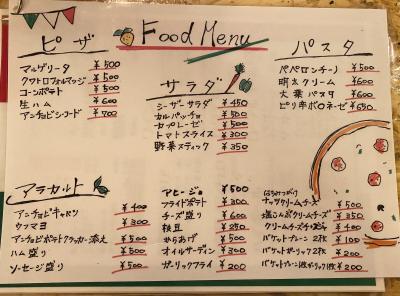 Food Menu
ピザ
マルゲリータ ¥500
クワトロフォルマッジ ¥500
コーンポテト ¥500
生ハム ¥600
アンチョビシラード ¥700
サラダ
シーザーサラダ ¥450
カルパッチョ ¥500
カプレーゼ ¥500
トマトスライス ¥300
野菜スティック ¥350
パスタ
ペペロンチーノ ¥500
明太クリーム ¥600
大葉パスタ ¥600
ピリ辛ボロネーゼ ¥650
アラカルト
アンチョビキャベツ ¥400
ウフマヨ ¥300
アンチョビポテトクラッカー添え ¥500
ハム盛り ¥500
ソーセージ盛り ¥500
アヒージョ ¥500
フライドポテト ¥300
チーズ盛り ¥600
枝豆 ¥250
からあげ ¥500
オイルサーディン ¥300
ガーリックフライ ¥200
はちみつがけ
ナッツクリームチーズ ¥500
塩こんぶクリームチーズ ¥350
クリームチーズ ¥400
バケットプレーン2枚 ¥100
バケットガーリック2枚 ¥200
バケットプレーン1枚ガーリック1枚 ¥200